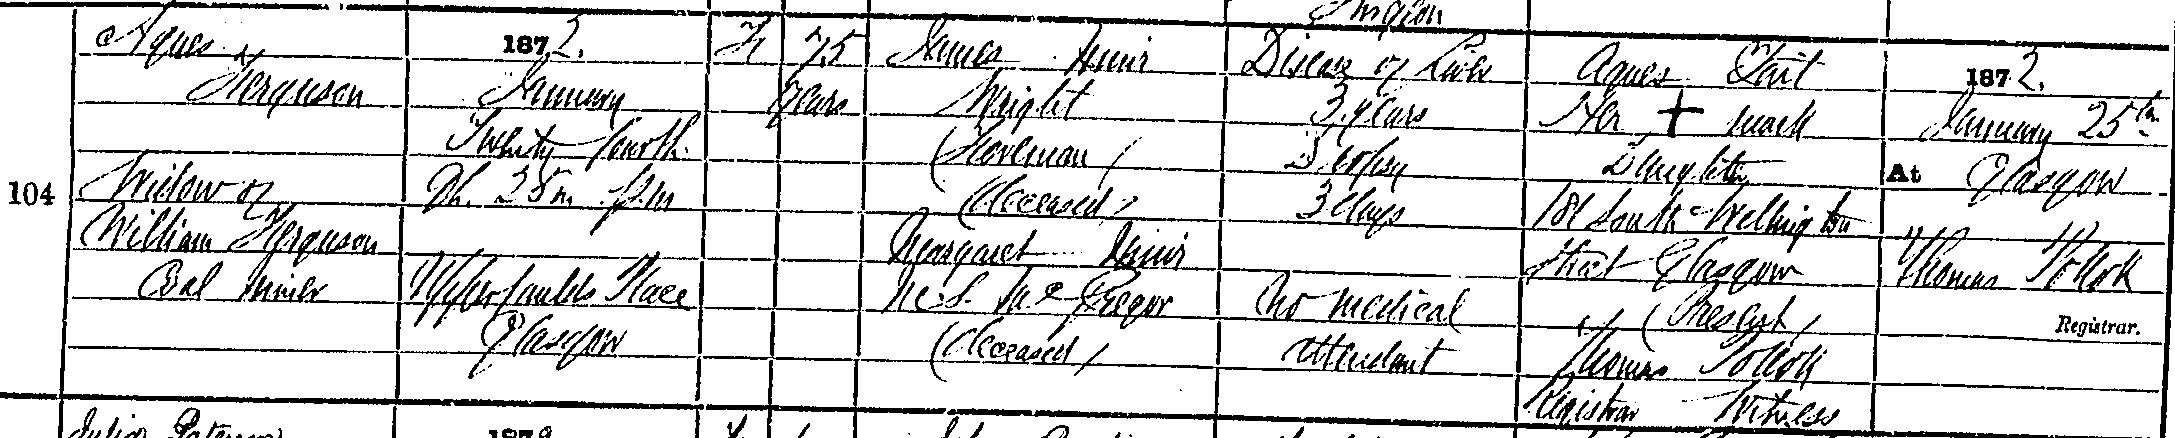 Surgeon
104
Agnes
Ferguson
Widow of
William Ferguson
Coal Miner
1872.
January
Twenty fourth
2h. 35m. P.M
Place
Glasgow
F
75
years
James Muir
Wright
(Foreman)
(deceased)
Margaret Muir
M.S. McGregor
(deceased)
Disease of Liver
3 years
Dropsy
3 days
No medical
attendant
Agnes Tait
Her + mark
Daughter
181 South Wellington
Street Glasgow
(Present)
Thomas Pollok
Registrar Witness
1872.
January 25th
At Glasgow
Thomas Pollok
Registrar.
Paterson
187